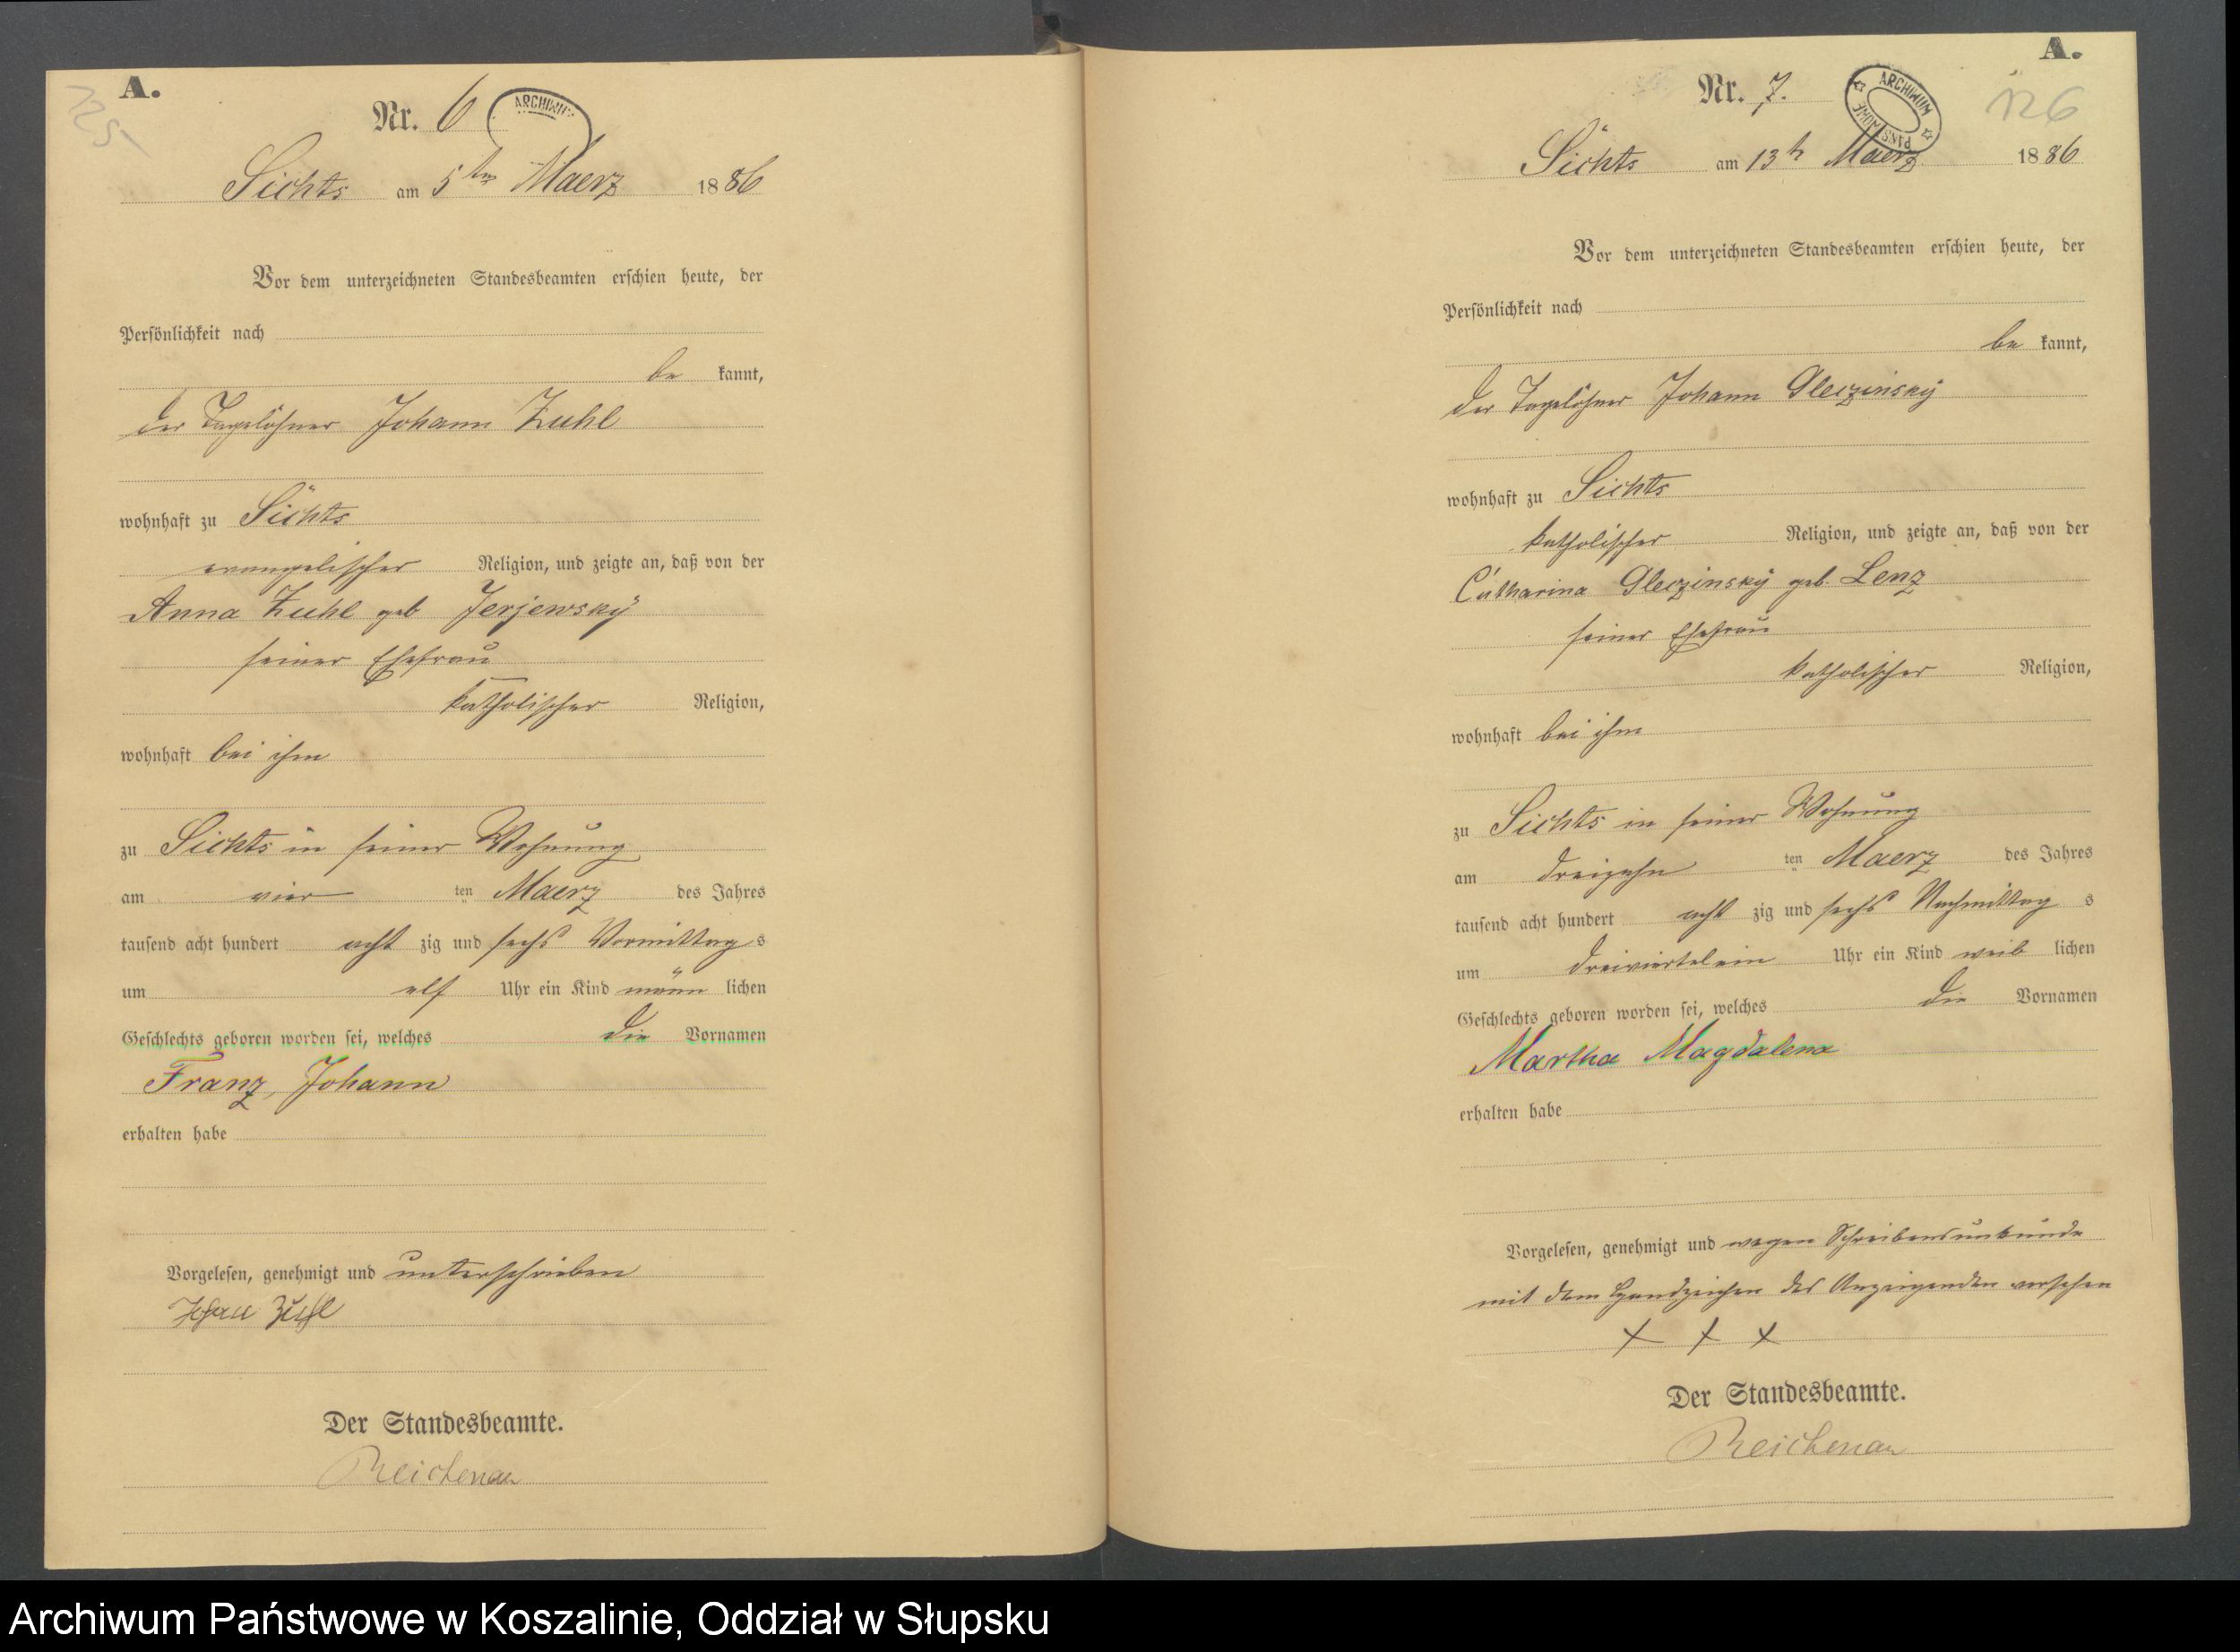 125
A.
Nr. 6
ARCHIWUM
Sichts am 5ten Maerz 1886
Vor dem unterzeichneten Standesbeamten erschien heute, der
Persönlichkeit nach
be kannt,
der Tagelöhner Johann Zuhl
wohnhaft zu Sichts
evangelischer Religion, und zeigte an, daß von der
Anna Zuhl geb Jerjewsky
seiner Ehefrau
katholischer Religion,
wohnhaft bei ihm
zu Sichts in seiner Wohnung
am vier ten Maerz des Jahres
tausend acht hundert acht zig und sechs Vormittag s
um elf Uhr ein Kind männ lichen
Geschlechts geboren worden sei, welches die Vornamen
Franz, Johann
erhalten habe
Vorgelesen, genehmigt und unterschrieben
Johan Zuhl
Der Standesbeamte.
Reichenau
A.
Nr. 7.
ARCHIWUM PAŃSTWOWE
126
Sichts am 13t Maerz 1886
Vor dem unterzeichneten Standesbeamten erschien heute, der
Persönlichkeit nach
be kannt,
der Tagelöhner Johann Gleczinsky
wohnhaft zu Sichts
katholischer Religion, und zeigte an, daß von der
Catharina Gleczinsky geb. Lenz
seiner Ehefrau
katholischer Religion,
wohnhaft bei ihm
zu Sichts in seiner Wohnung
am dreizehn ten Maerz des Jahres
tausend acht hundert acht zig und sechs Nachmittag s
um dreiviertel ein Uhr ein Kind weib lichen
Geschlechts geboren worden sei, welches die Vornamen
Martha Magdalena
erhalten habe
Vorgelesen, genehmigt und wegen Schreibensunkunde
mit dem Handzeichen des Anzeigenden versehen
x x x
Der Standesbeamte.
Reichenau
Archiwum Państwowe w Koszalinie, Oddział w Słupsku